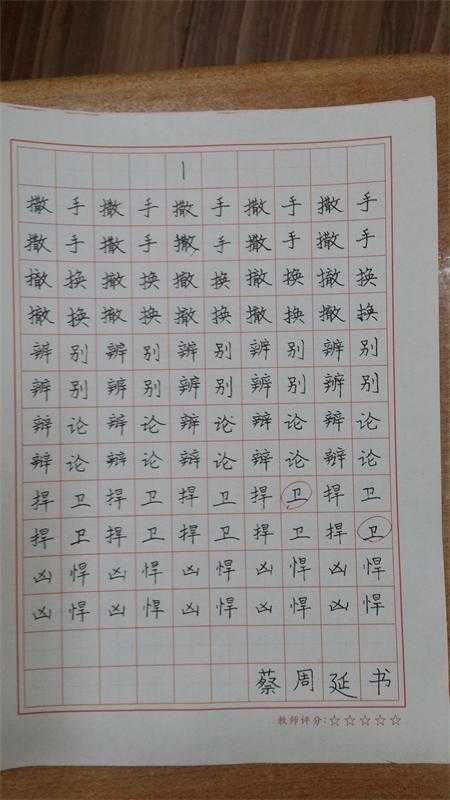 1
撒手撒手撒手撒手撒手
撒手撒手撒手撒手撒手
撤换撤换撤换撤换撤换
撤换撤换撤换撤换撤换
辨别辨别辨别辨别辨别
辨别辨别辨别辨别辨别
辩论辩论辩论辩论辩论
辩论辩论辩论辩论辩论
捍卫捍卫捍卫捍卫捍卫
捍卫捍卫捍卫捍卫捍卫
凶悍凶悍凶悍凶悍凶悍
凶悍凶悍凶悍凶悍凶悍
蔡周延书
教师评分:☆☆☆☆☆